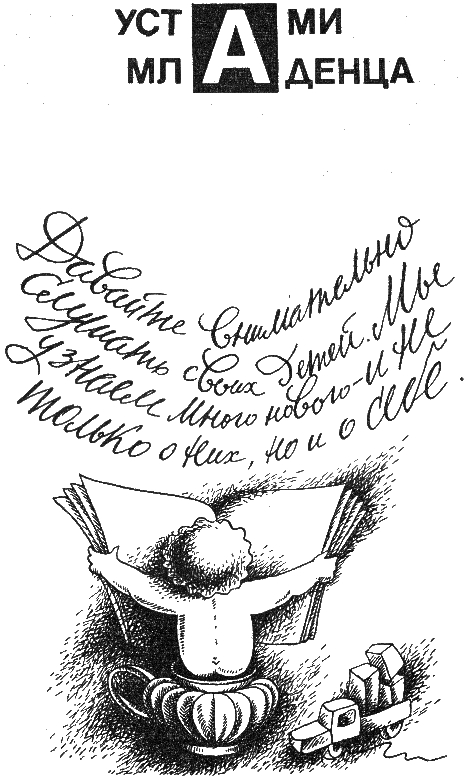 УСТАМИ
МЛАДЕНЦА
Давайте внимательно
слушать своих детей. Мы
узнаем много нового - и не
только о них, но и о себе.